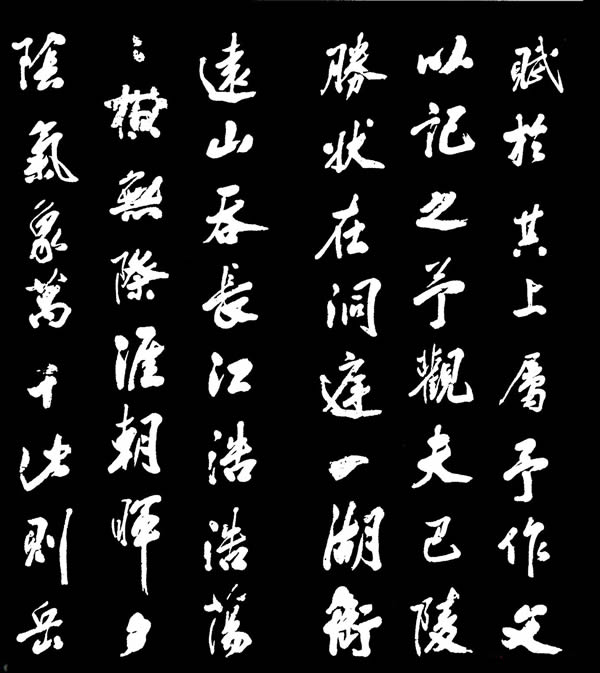 賦於其上屬予作文
以記之予觀夫巴陵
勝狀在洞庭一湖銜
遠山吞長江浩浩蕩
〻橫無際涯朝暉夕
陰氣象萬千此則岳